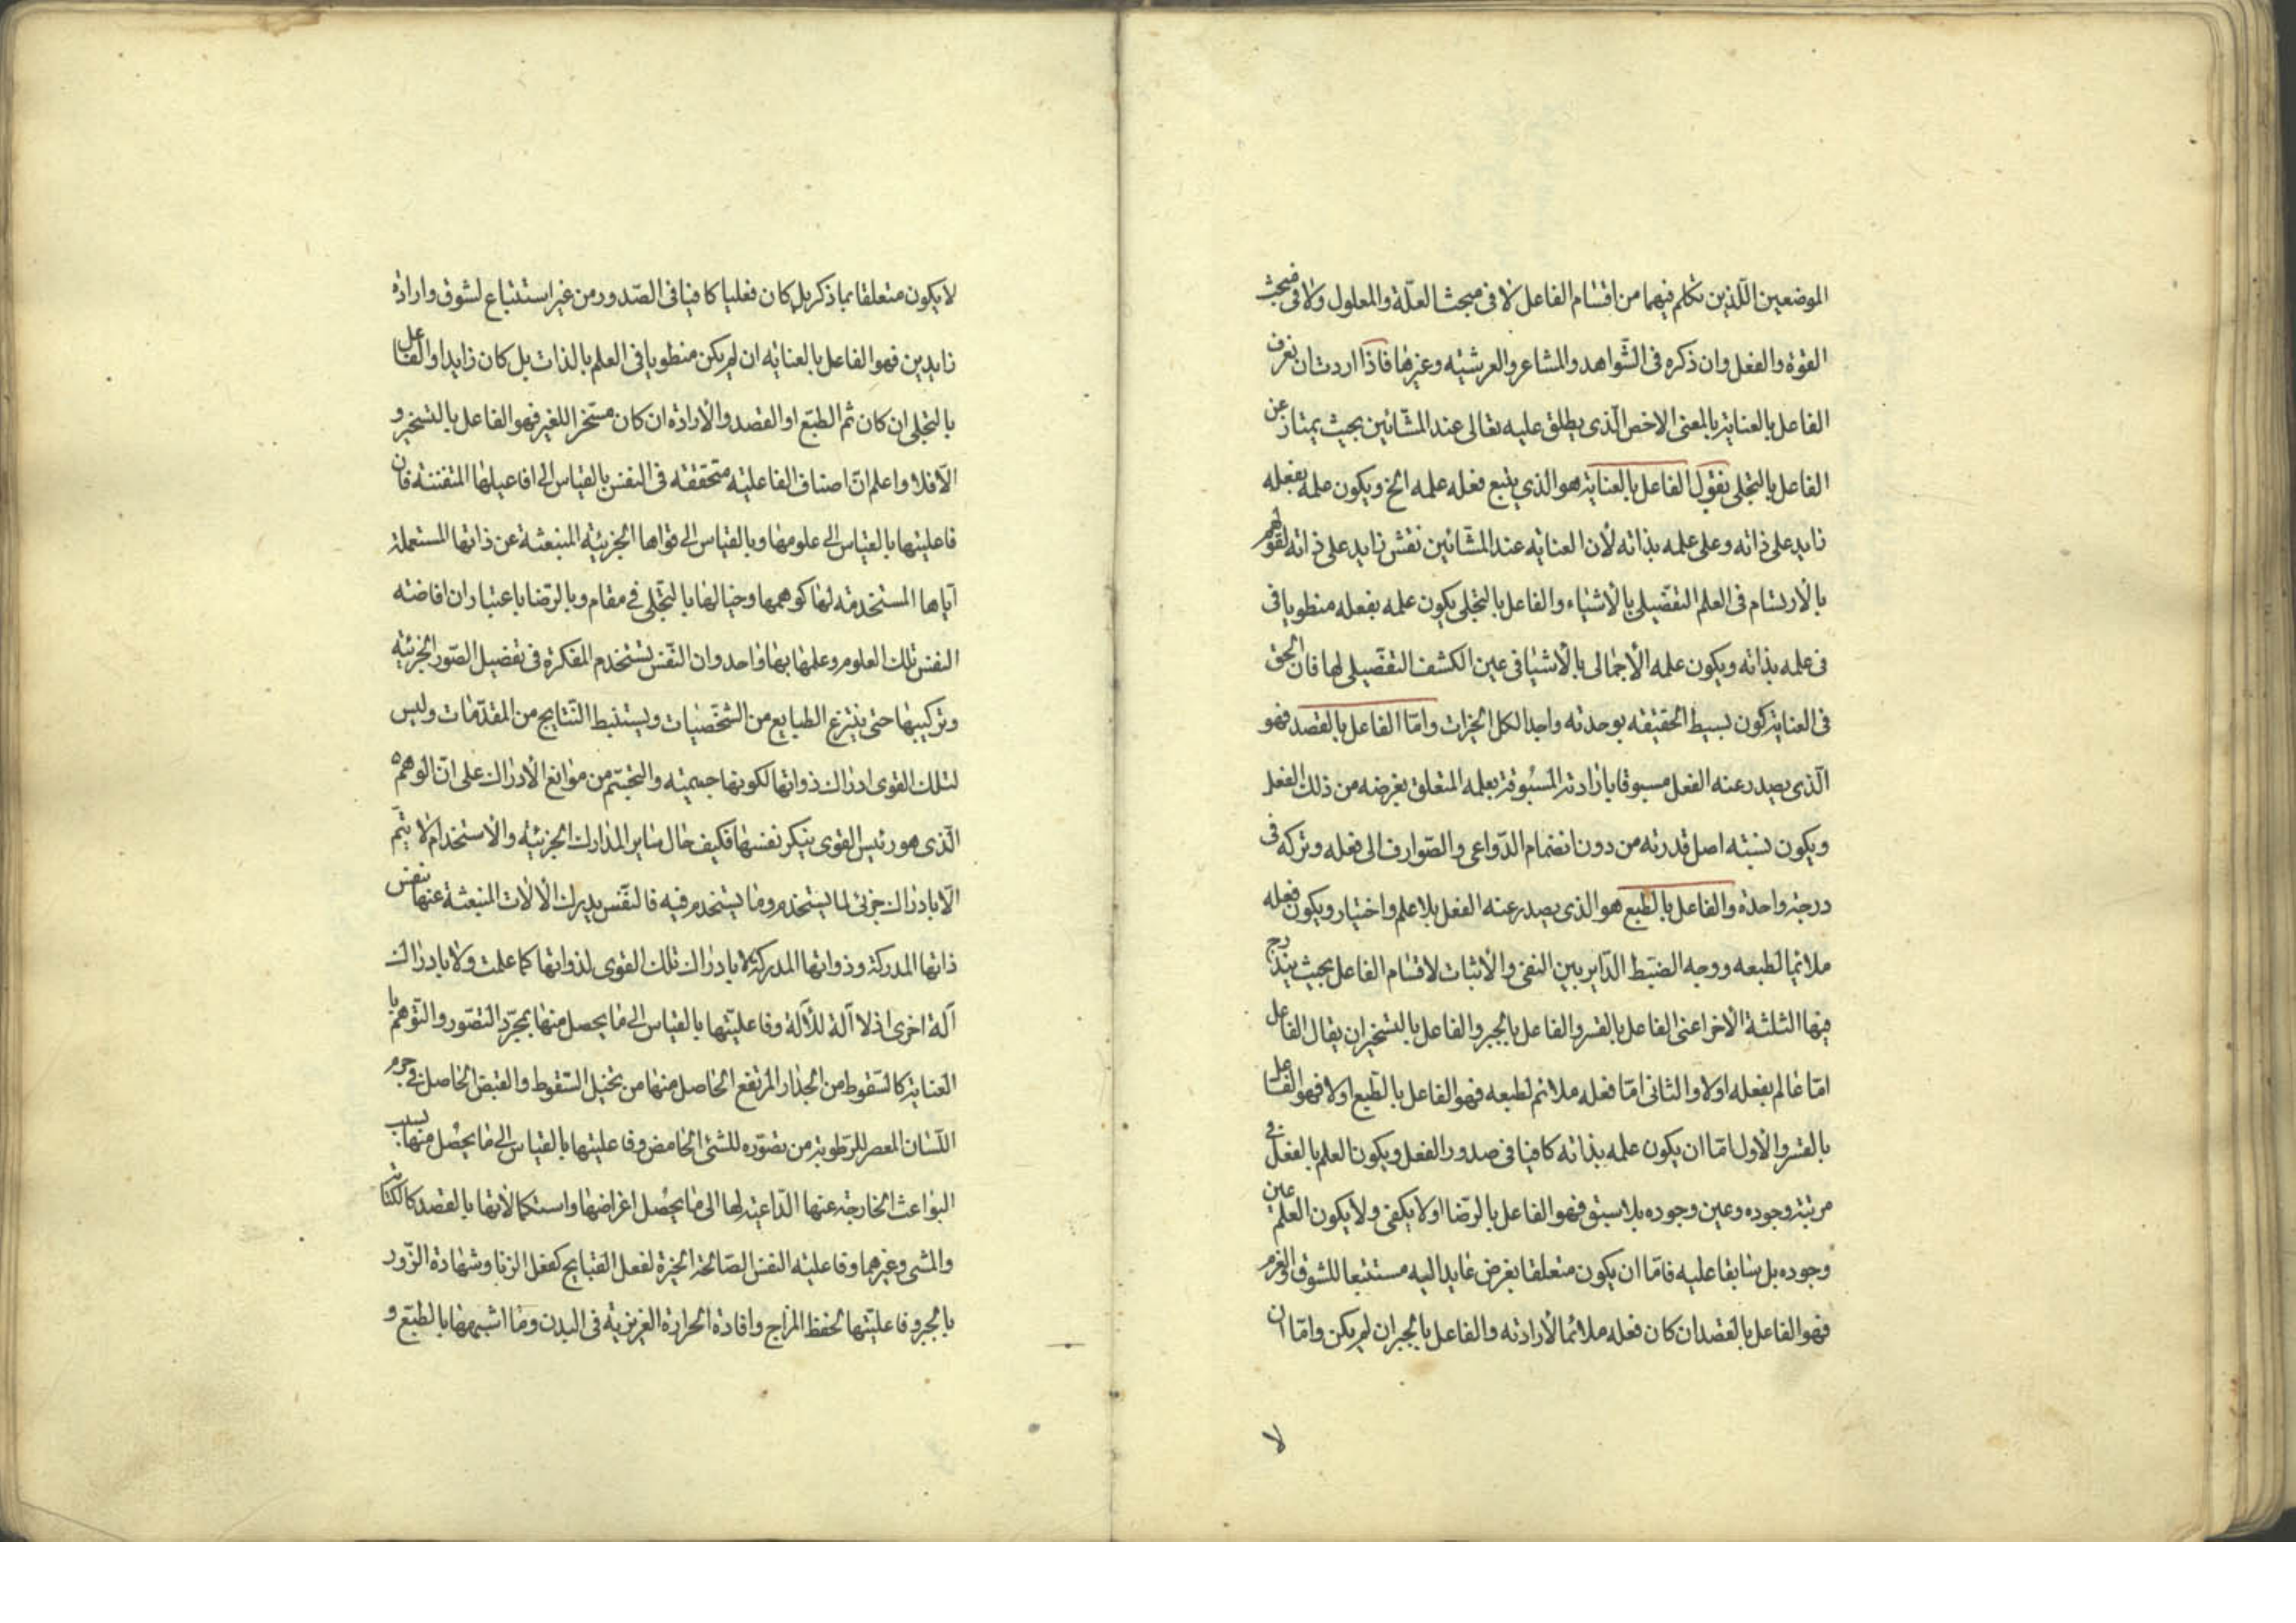 الموضعين اللذين تكلم فيهما من اقسام الفاعل لا فى مبحث العلّة والمعلول ولا فى مبحث
القوة والفعل وان ذكره فى الشّواهد والمشاعر والعرشيّه وغيرها فاذا اردت ان تعرف
الفاعل بالعناية بالمعنى الاخص الّذى يطلق عليه تعالى عند المشّائين بحيث يمتاز عن
الفاعل بالتجلى نقول الفاعل بالعناية هو الذي يتبع فعله علمه الخ ويكون علمه بفعله
زايد على ذاته وعلى علمه بذاته لأن العنايه عند المشّائين نقش زايد على ذاته لقولهم
بالأرتسام فى العلم التفصّيلى بالأشياء والفاعل بالتجلى يكون علمه بفعله منطويا فى
فى علمه بذاته ويكون علمه الأجمالى بالأشيا فى عين الكشف التفصّيلى لها فان الحق
فى العناية كون بسيط الحقيقه بوحدته واجدا لكل الخيرات وامّا الفاعل بالقصد فهو
الّذى يصدر عنه الفعل مسبوقا بارادته المسبوقة بعلمه المتعلق بغرضه من ذلك الفعل
ويكون نسبته اصل قدرته من دون انضمام الدّواعى والصّوارف الى فعله وتركه فى
درجة واحدة والفاعل بالطّبع هو الذى يصدر عنه الفعل بلا علم واختيار ويكون فعله
ملائما لطبعه ووجه الضبط الدّاير بين النفى والأثبات لاقسام الفاعل بحيث يندرج
فيها الثلثة الأخر اعنى الفاعل بالقسر والفاعل بالجبر والفاعل بالتسخير ان يقال الفاعل
امّا عالم بفعله اولا والثانى امّا فعله ملائم لطبعه فهو الفاعل بالطّبع اولا فهو الفاعل
بالقسر والأول امّا ان يكون علمه بذاته كافيا فى صدور الفعل ويكون العلم بالفعل فى
مرتبة وجوده وعين وجوده بلا سبق فهو الفاعل بالرّضا اولا يكفى ولا يكون العلم عين
وجوده بل سابقا عليه فامّا ان يكون متعلقا بغرض عايد اليه مستتبعا للشوق والعزم
فهو الفاعل بالقصد ان كان فعله ملائما لأرادته والفاعل بالجبر ان لم يكن وامّا ان
لا
لا يكون متعلقا بما ذكر بل كان فعليا كافيا فى الصّدور من غير استتباع لشوق وارادة
زايدين فهو الفاعل بالعنايه ان لم يكن منطويا فى العلم بالذات بل كان زايدا والفاعل
بالتجلى ان كان ثم الطبّع او القصد والأراده ان كان مسخّرا للغير فهو الفاعل بالتسخير و
الّا فلا واعلم انّ اصناف الفاعليّه متحققه فى النفس بالقياس الى افاعيلها المتفننه فان
فاعليتها بالقياس الى علومها وبالقياس الى قواها الجزئيّه المنبعثة عن ذاتها المستعملة
ايّاها المستخدمه لها كوهمها وخيالها بالتجّلى فى مقام وبالرّضا باعتبار ان افاضته
النفس تلك العلوم وعلمها بها واحد وان النّفس تستخدم المفكرة فى تفصيل الصّور الجزئيّه
وتركيبها حتى ينتزع الطبايع من الشخّصيات ويستنبط النّتايج من المقدّمات وليس
لتلك القوى ادراك ذواتها لكونها جسميّه والتجسّم من موانع الأدراك على انّ الوهم
الّذى هو رئيس القوى ينكر نفسها فكيف حال ساير المدارك الجزئيّة والأستخدام لا يتّم
الّا بادراك جزئى لما يستخدم وما يستخدم فيه فالنفّس يدرك الألات المنبعثة عنها بنفس
ذاتها المدركة وذواتها المدركة لا بادراك تلك القوى لذواتها كما علمت ولا بادراك
آلة اخرى اذ لا آلة للألة وفاعليّتها بالقياس الى ما يحصل منها بمجرّد التصّور والتّوهم با
العناية كالسّقوط من الجدار المرتفع الحاصل منها من تخيل السّقوط والقبض الحاصل فى جرم
اللّسان المعصر للرّطوبة من تصوّره للشئ الحامض وفاعليتها بالقياس الى ما يحصل منها بسبب
البواعث الخارجة عنها الدّاعية لها الى ما يحصل اغراضها واستكمالأتها بالقصد كالكتابة
والمشى وغيرهما وفاعليّه النفس الصّالحة الخيّرة لفعل القبايح كفعل الزنا وشهادة الزّور
بالجبر وفاعليّتها لحفظ المزاج وافادة الحرارة الغريزيّة فى البدن وما اشبهها بالطبّع و